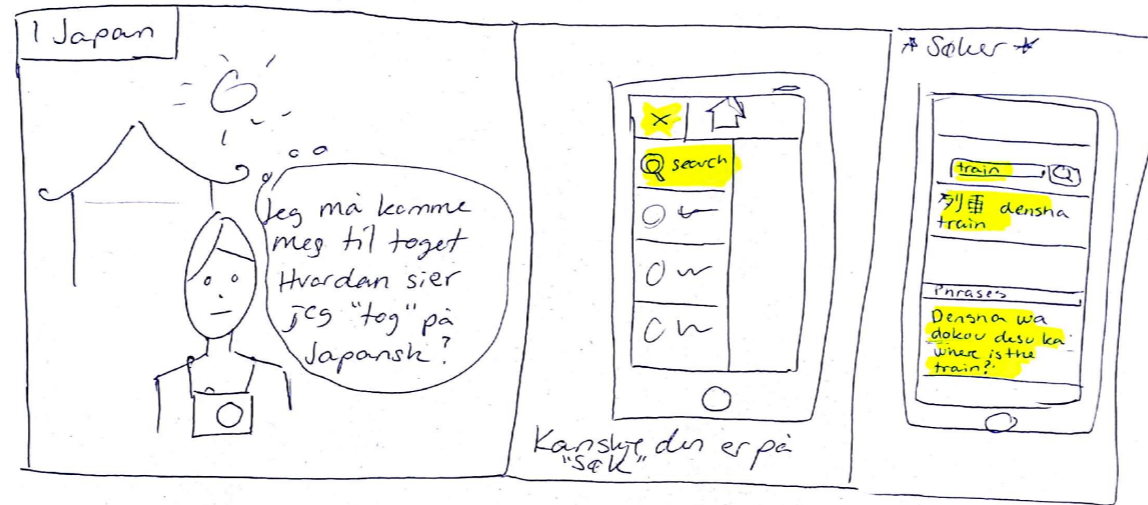 I Japan
Jeg må komme
meg til toget
Hvordan sier
jeg "tog" på
Japansk?
X
search
Kanskje den er på
"Søk"
* Søker *
train
列車 densha
train
Phrases
Densha wa
dokou desu ka
where is the
train?